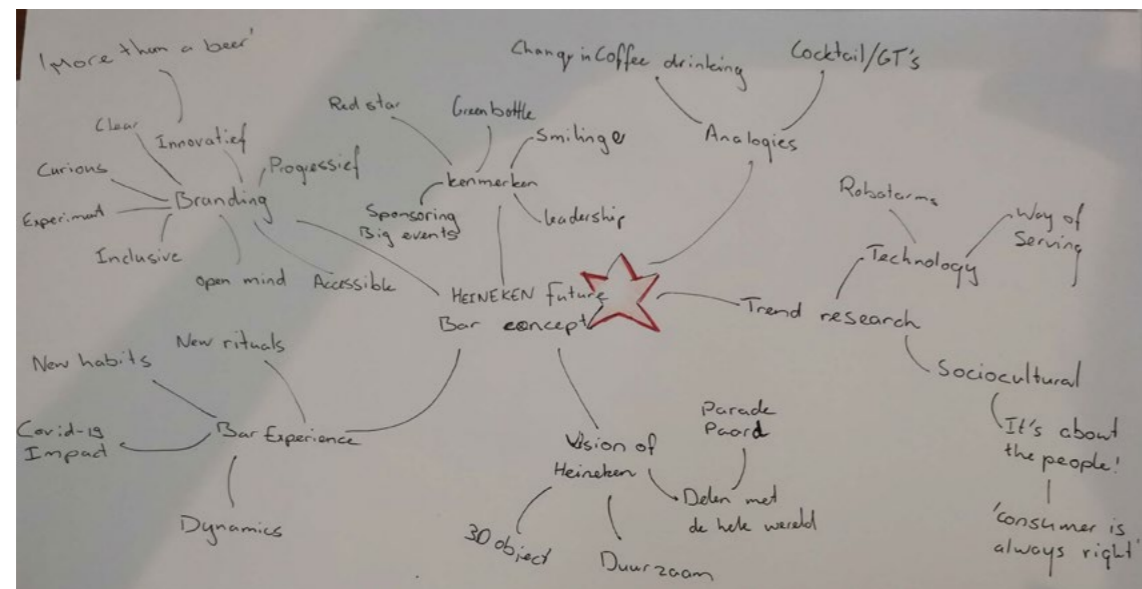 'More than a beer'
Clear
Innovatief
Curious
Progressief
Branding
Experiment
Inclusive
open mind
Accessible
Red star
Green bottle
Smiling e
kenmerken
Sponsoring
Big events
leadership
Change in Coffee drinking
Cocktail/GT's
Analogies
HEINEKEN future
Bar concept
Robotarms
Way of
Serving
Technology
Trend research
Sociocultural
It's about
the people!
'consumer is
always right'
New habits
New rituals
Covid-19
Impact
Bar Experience
Dynamics
Vision of
Heineken
Parade
Paard
Delen met
de hele wereld
3D object
Duurzaam